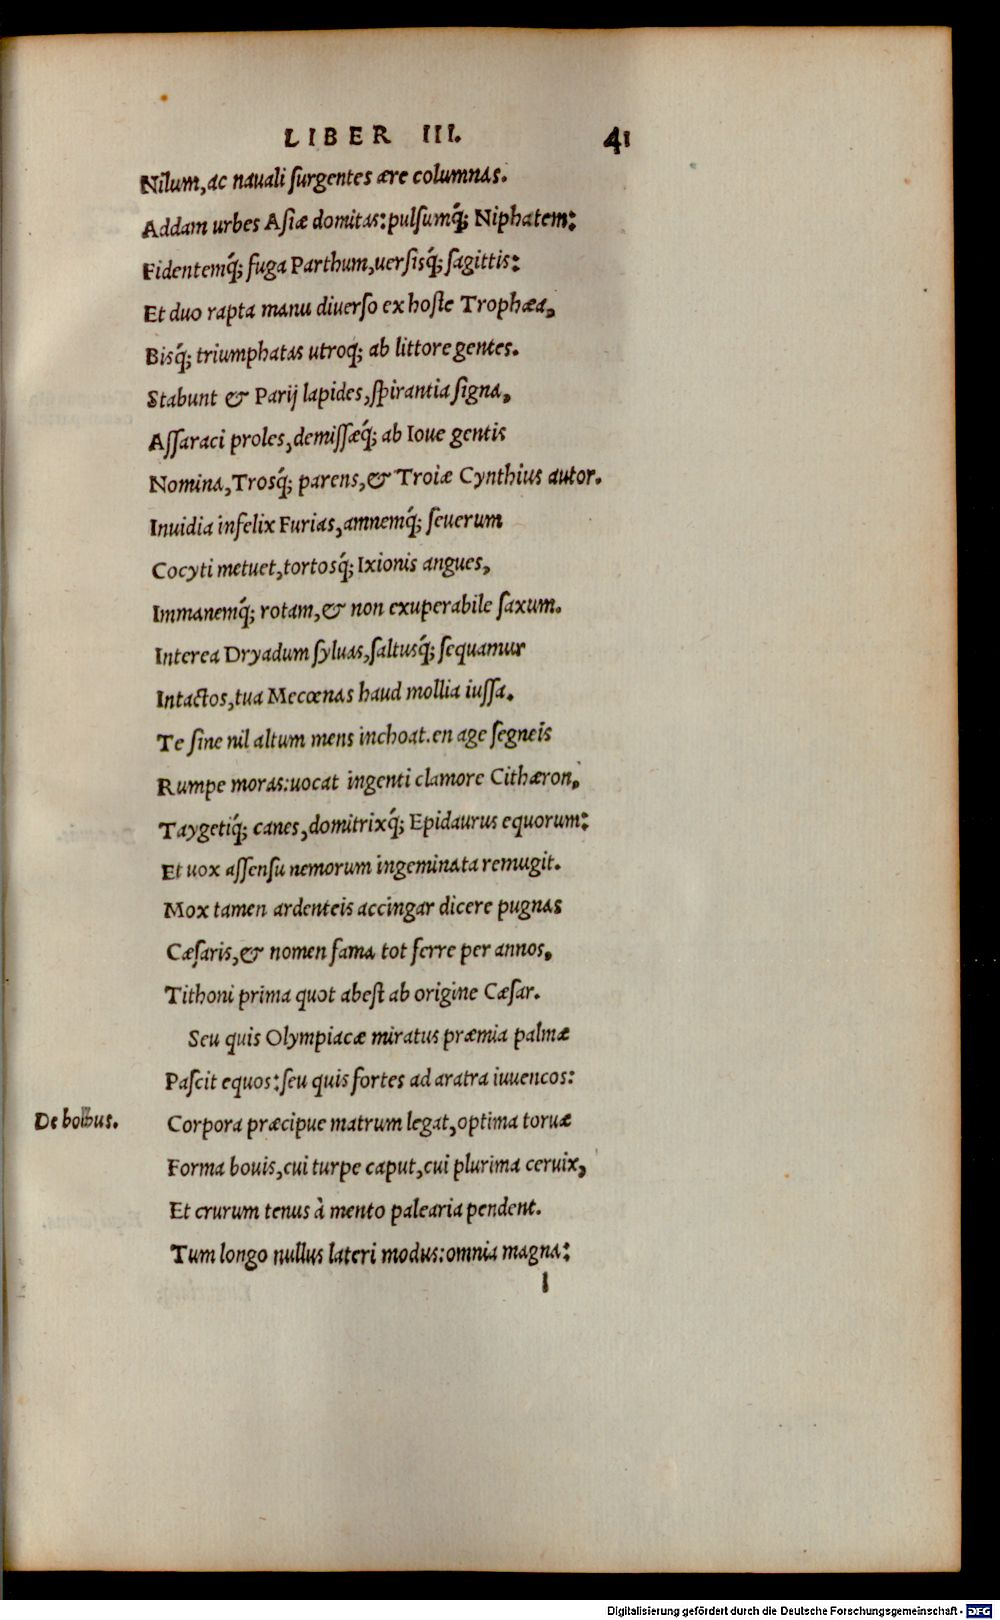 LIBER III. 41
Nilum, ac nauali ſurgentes ære columnas.
Addam urbes Aſiæ domitas: pulſumq́; Niphatem:
Fidentemq́; fuga Parthum, uerſisq́; ſagittis:
Et duo rapta manu diuerſo ex hoſte Trophæa,
Bisq́; triumphatas utroq; ab littore gentes.
Stabunt & Parij lapides, ſpirantia ſigna,
Aſſaraci proles, demiſſæq́; ab Ioue gentis
Nomina, Trosq́; parens, & Troiæ Cynthius autor.
Inuidia infelix Furias, amnemq́; ſeuerum
Cocyti metuet, tortosq́; Ixionis angues,
Immanemq́; rotam, & non exuperabile ſaxum.
Interea Dryadum ſyluas, ſaltusq́; ſequamur
Intactos, tua Mecœnas haud mollia iuſſa.
Te ſine nil altum mens inchoat. en age ſegneis
Rumpe moras: uocat ingenti clamore Cithæron,
Taygetiq́; canes, domitrixq́; Epidaurus equorum:
Et uox aſſenſu nemorum ingeminata remugit.
Mox tamen ardenteis accingar dicere pugnas
Cæſaris, & nomen fama tot ferre per annos,
Tithoni prima quot abeſt ab origine Cæſar.
Seu quis Olympiacæ miratus præmia palmæ
Paſcit equos: ſeu quis fortes ad aratra iuuencos:
De bobus. Corpora præcipue matrum legat, optima toruæ
Forma bouis, cui turpe caput, cui plurima ceruix,
Et crurum tenus à mento palearia pendent.
Tum longo nullus lateri modus: omnia magna:
l
Digitalisierung gefördert durch die Deutsche Forschungsgemeinschaft - DFG